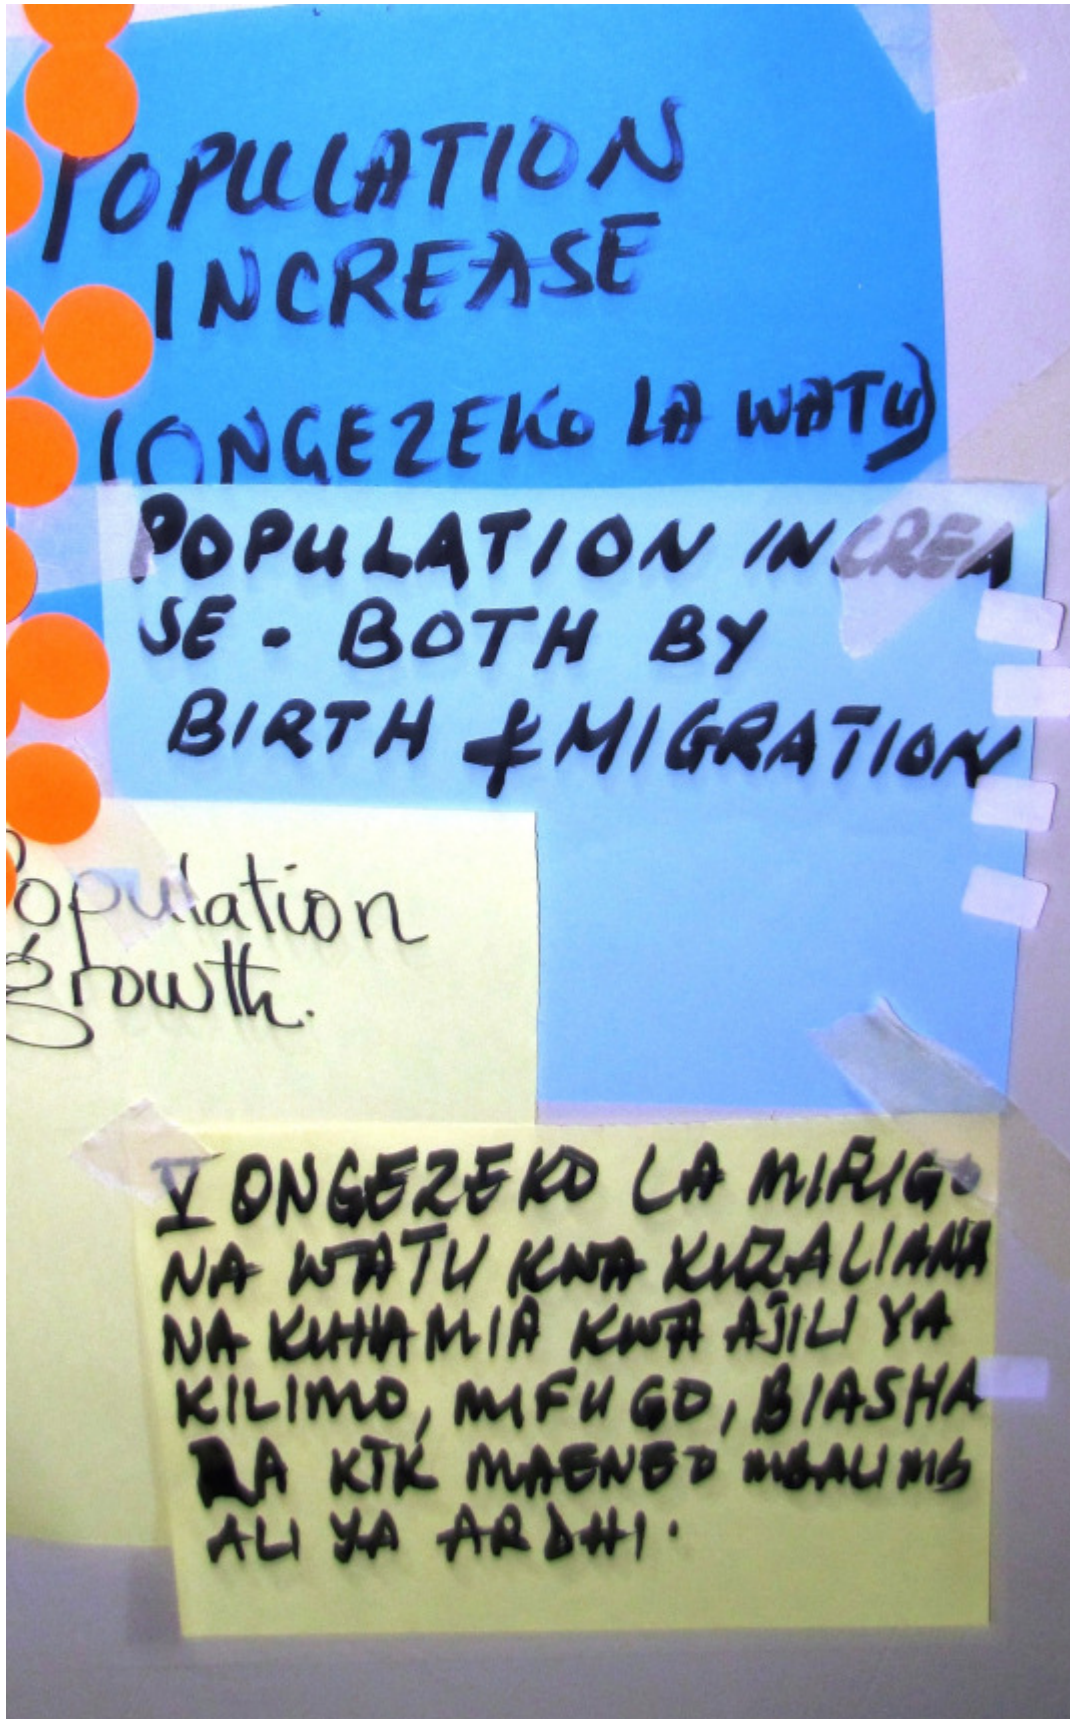 POPULATION
INCREASE
(ONGEZEKO LA WATU)
POPULATION INCREA
SE - BOTH BY
BIRTH & MIGRATION
Population
growth.
V ONGEZEKO LA MIFUGO
NA WATU KWA KUZALIANA
NA KUHAMIA KWA AJILI YA
KILIMO, MIFUGO, BIASHA
RA KTK MAENEO MBALIMB
ALI YA ARDHI.